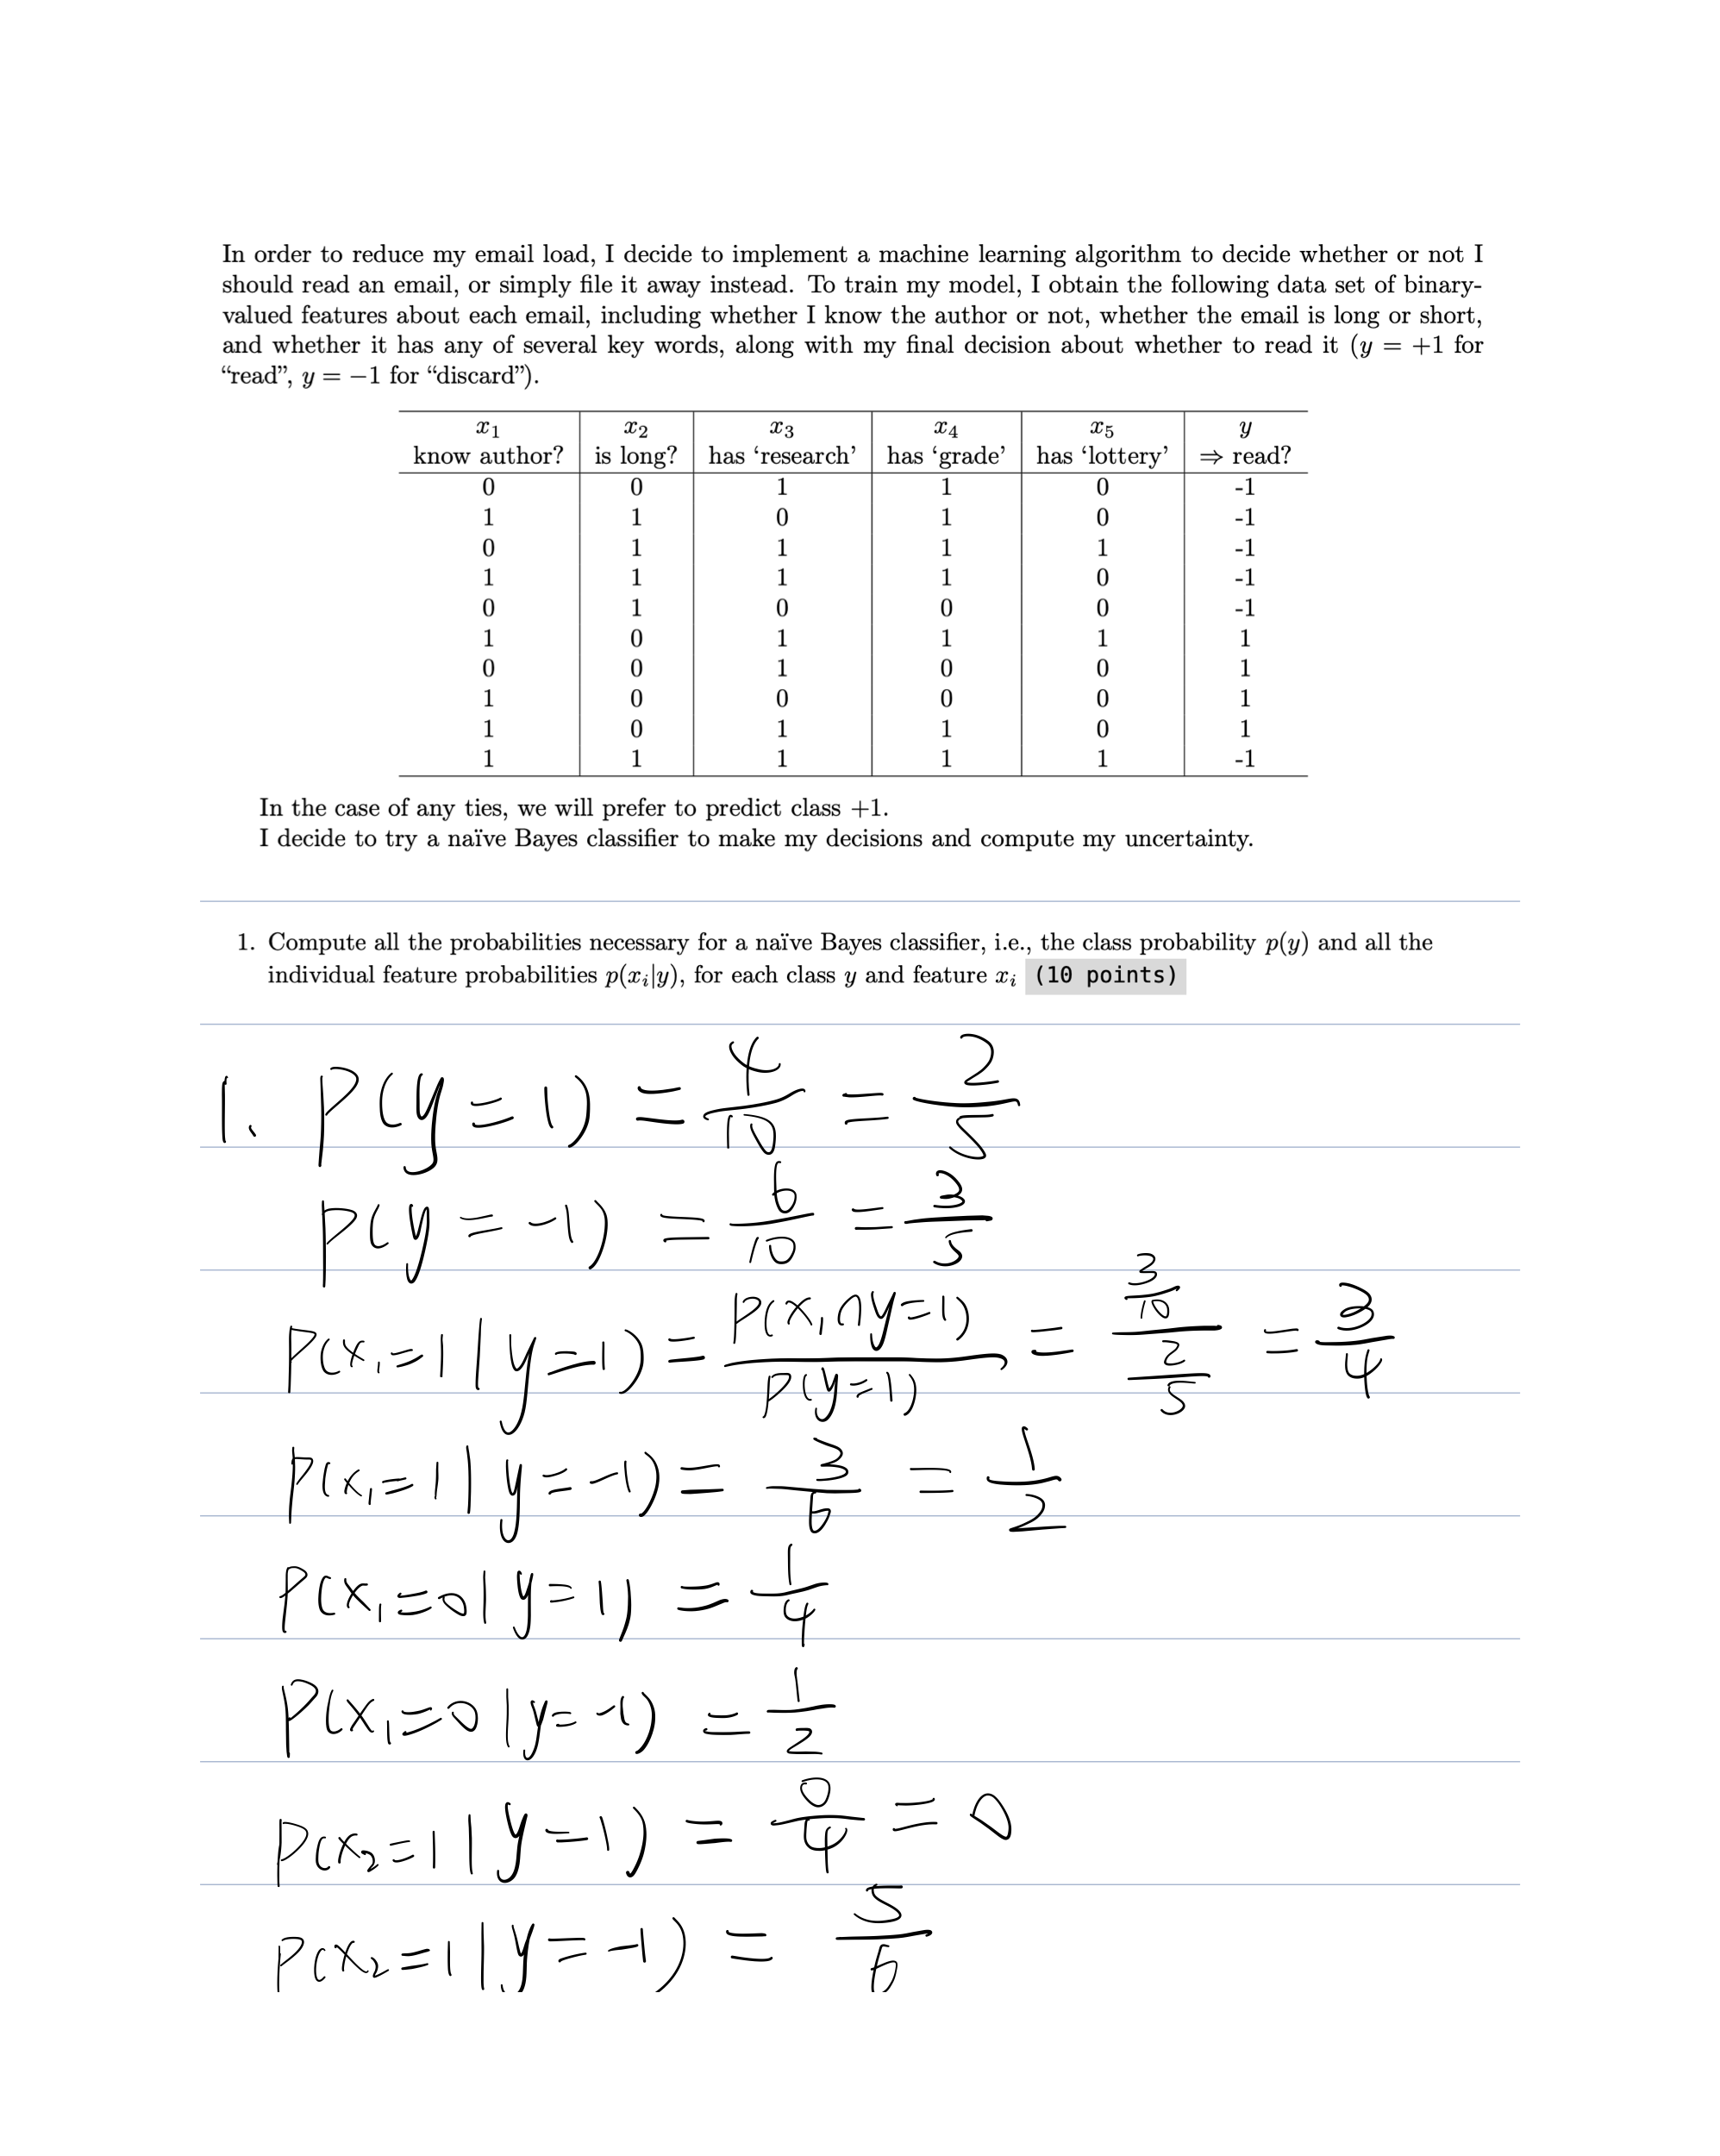 In order to reduce my email load, I decide to implement a machine learning algorithm to decide whether or not I
should read an email, or simply file it away instead. To train my model, I obtain the following data set of binary-
valued features about each email, including whether I know the author or not, whether the email is long or short,
and whether it has any of several key words, along with my final decision about whether to read it (y = +1 for
“read”, y = −1 for “discard”).
x₁ x₂ x₃ x₄ x₅ y
know author? is long? has ‘research’ has ‘grade’ has ‘lottery’ ⇒ read?
0 0 1 1 0 -1
1 1 0 1 0 -1
0 1 1 1 1 -1
1 1 1 1 0 -1
0 1 0 0 0 -1
1 0 1 1 1 1
0 0 1 0 0 1
1 0 0 0 0 1
1 0 1 1 0 1
1 1 1 1 1 -1
In the case of any ties, we will prefer to predict class +1.
I decide to try a naïve Bayes classifier to make my decisions and compute my uncertainty.
1. Compute all the probabilities necessary for a naïve Bayes classifier, i.e., the class probability p(y) and all the
individual feature probabilities p(xᵢ|y), for each class y and feature xᵢ (10 points)
1. P(y=1) = 4/10 = 2/5
P(y=-1) = 6/10 = 3/5
P(x₁=1|y=1) = P(x₁∩y=1)/P(y=1) = (3/10)/(2/5) = 3/4
P(x₁=1|y=-1) = 3/6 = 1/2
P(x₁=0|y=1) = 1/4
P(x₁=0|y=-1) = 1/2
P(x₂=1|y=1) = 0/4 = 0
P(x₂=1|y=-1) = 5/6